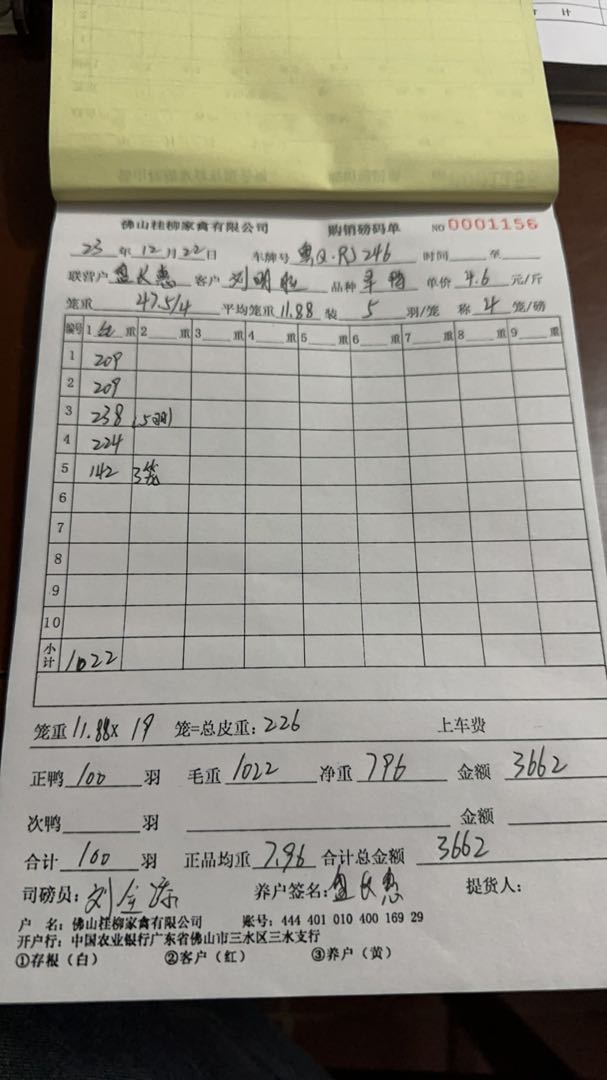 佛山桂柳家禽有限公司 购销磅码单 NO 0001156
23 年 12 月 22 日 车牌号 粤Q·RJ246 时间 至
联营户 盘长惠 客户 刘明 品种 单价 4.6 元/斤
笼重 47.5/4 平均笼重 11.88 装 5 羽/笼 称 4 笼/磅
编号 1 重 2 重 3 重 4 重 5 重 6 重 7 重 8 重 9 重
1 209
2 209
3 238 (5羽)
4 224
5 142 3笼
6
7
8
9
10
小计 1022
笼重 11.88x 19 笼=总皮重: 226 上车费
正鸭 100 羽 毛重 1022 净重 796 金额 3662
次鸭 羽 金额
合计 100 羽 正品均重 7.96 合计总金额 3662
司磅员: 刘 养户签名: 盘长惠 提货人:
户 名: 佛山桂柳家禽有限公司 账号: 444 401 010 400 169 29
开户行: 中国农业银行广东省佛山市三水区三水支行
①存根（白） ②客户（红） ③养户（黄）